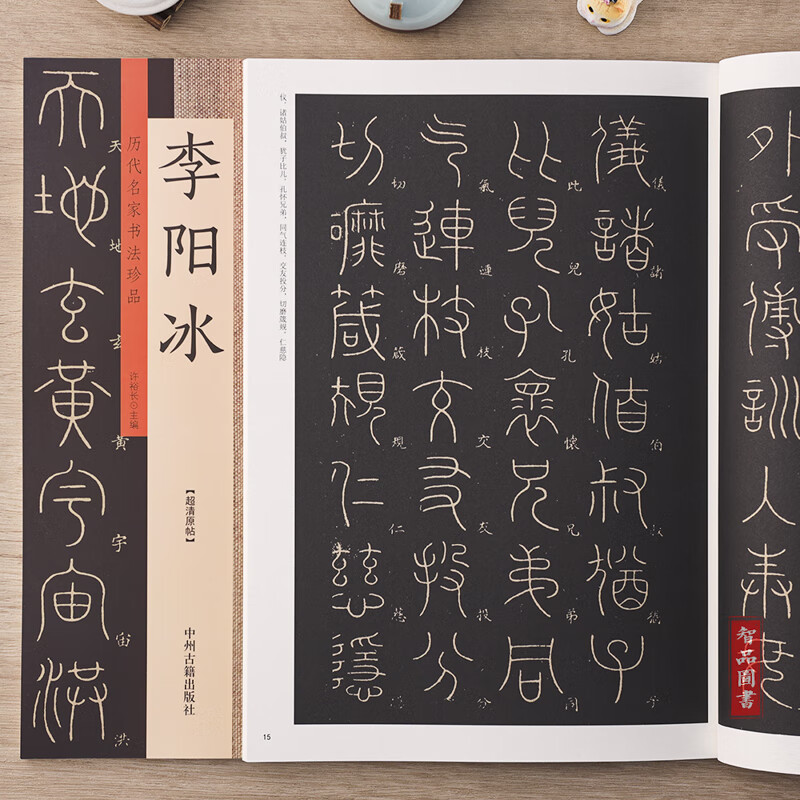 天地玄黃宇宙洪
天地玄黃宇宙洪
历代名家书法珍品
许裕长⊙主编
李阳冰
【超清原帖】
中州古籍出版社
外受傅訓入奉母
儀諸姑伯叔猶子
儀諸姑伯叔猶子
比兒孔懷兄弟同
比兒孔懷兄弟同
气連枝交友投分
氣連枝交友投分
切磨箴規仁慈隱
切磨箴規仁慈
仪，诸姑伯叔，犹子比儿，孔怀兄弟，同气连枝，交友投分，切磨箴规，仁慈隐
15
智品圖書